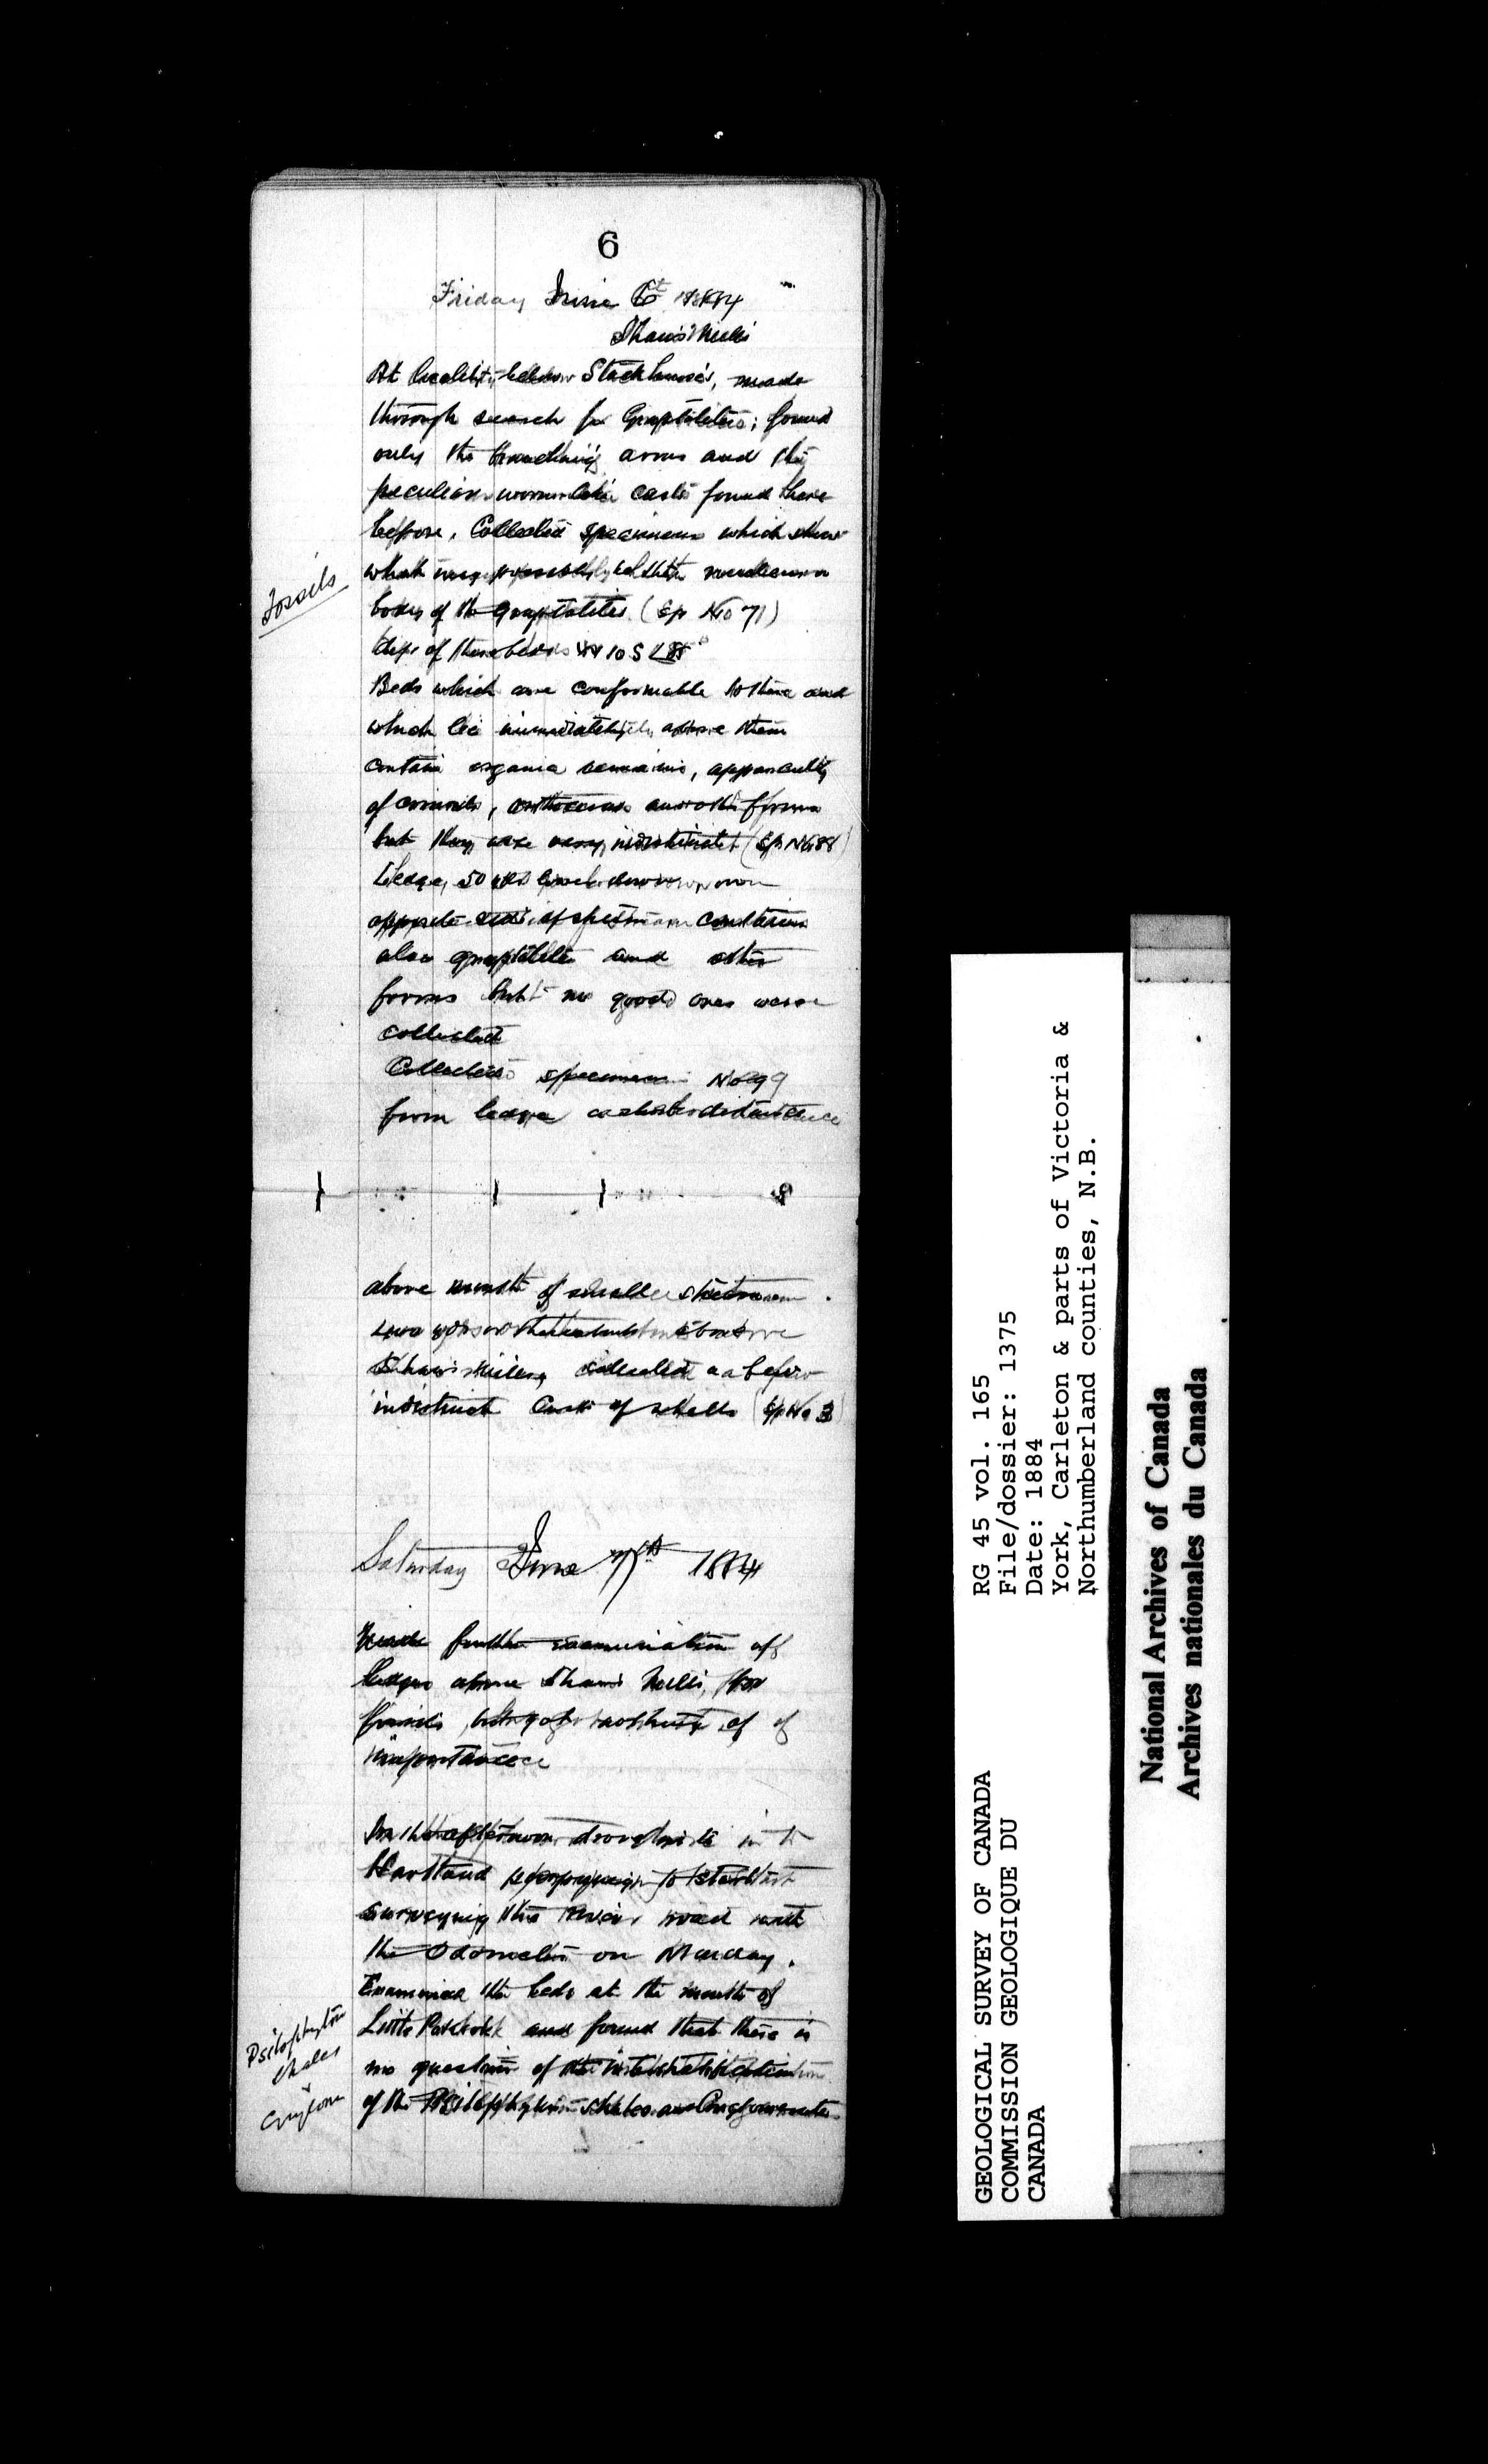 6
Friday June 6th 1884
Shaw's Mills
At locality below Stackhouse's, made
through search for Graptolites; found
only the branching arms and the
peculiar worm like casts found there
before. Collected specimens which show
what may possibly be the
body of the graptolites (Sp No 71)
dips of these beds 10 S < 85°
Beds which are conformable to these and
which lie immediately above them
contain organic remains, apparently
of crinoids, and other forms
but they are very indistinct (Sp No 88)
Ledge, 50 yds
opposite side of stream contains
also graptolites and other
forms but no good ones were
collected
Collected specimens No 99
from ledge a short distance
Fossils
above mouth of small stream
above
Shaw's Mills, collected as before
indistinct casts of shells (Sp No 3)
Saturday June 7th 1884
Made further examination of
ledges above Shaws Mills, for
fossils, but got nothing of
importance
In the afternoon drove in to
Hartland to start
surveying the River road with
the Odometer on Monday.
Examined the beds at the mouth of
Little and found that there is
no question of the
of the Psilophyton shales and Conglomerates
Psilophyton
shales
&
Conglom
RG 45 vol. 165
File/dossier: 1375
Date: 1884
York, Carleton & parts of Victoria &
Northumberland counties, N.B.
GEOLOGICAL SURVEY OF CANADA
COMMISSION GEOLOGIQUE DU
CANADA
National Archives of Canada
Archives nationales du Canada